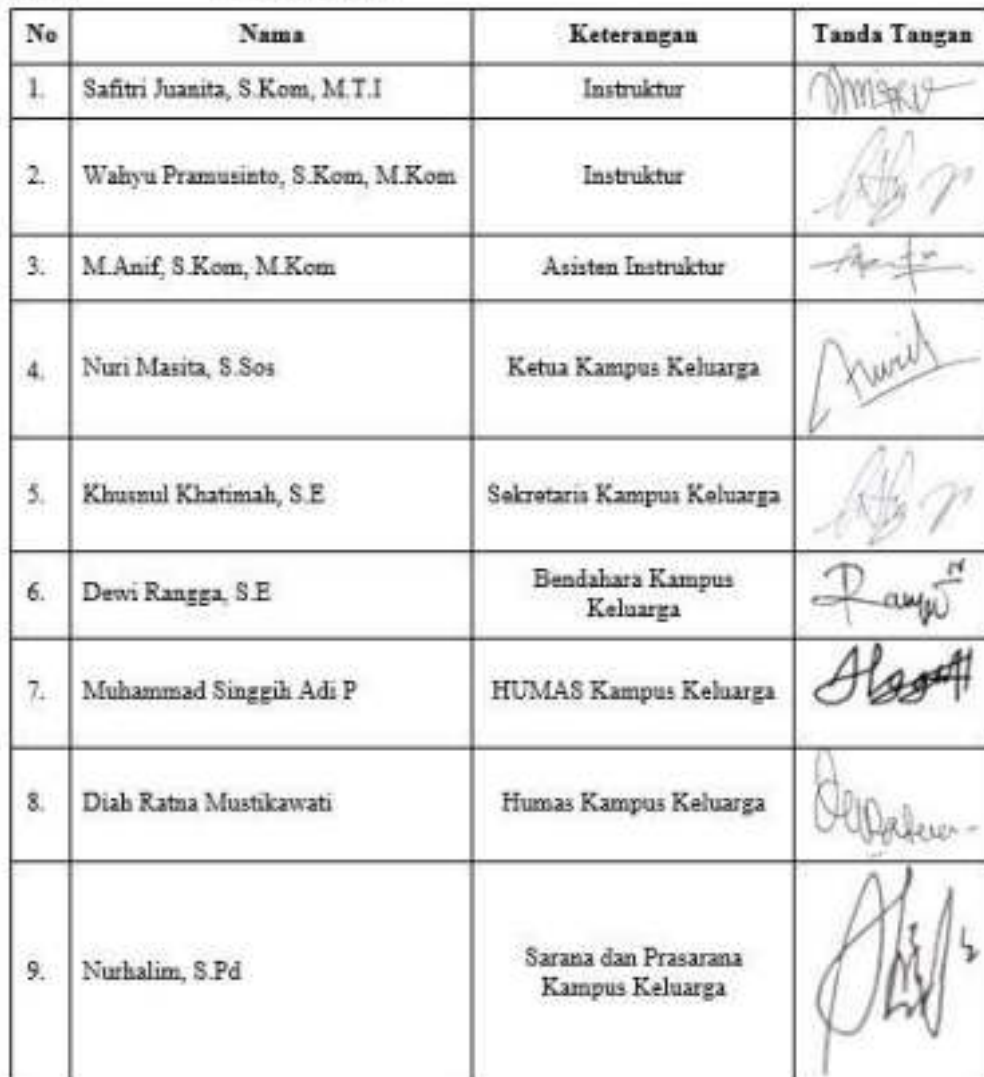 No Nama Keterangan Tanda Tangan
1. Safitri Juanita, S.Kom, M.T.I Instruktur
2. Wahyu Pramusinto, S.Kom, M.Kom Instruktur
3. M.Anif, S.Kom, M.Kom Asisten Instruktur
4. Nuri Masita, S.Sos Ketua Kampus Keluarga
5. Khusnul Khatimah, S.E Sekretaris Kampus Keluarga
6. Dewi Rangga, S.E Bendahara Kampus
Keluarga
7. Muhammad Singgih Adi P HUMAS Kampus Keluarga
8. Diah Ratna Mustikawati Humas Kampus Keluarga
9. Nurhalim, S.Pd Sarana dan Prasarana
Kampus Keluarga